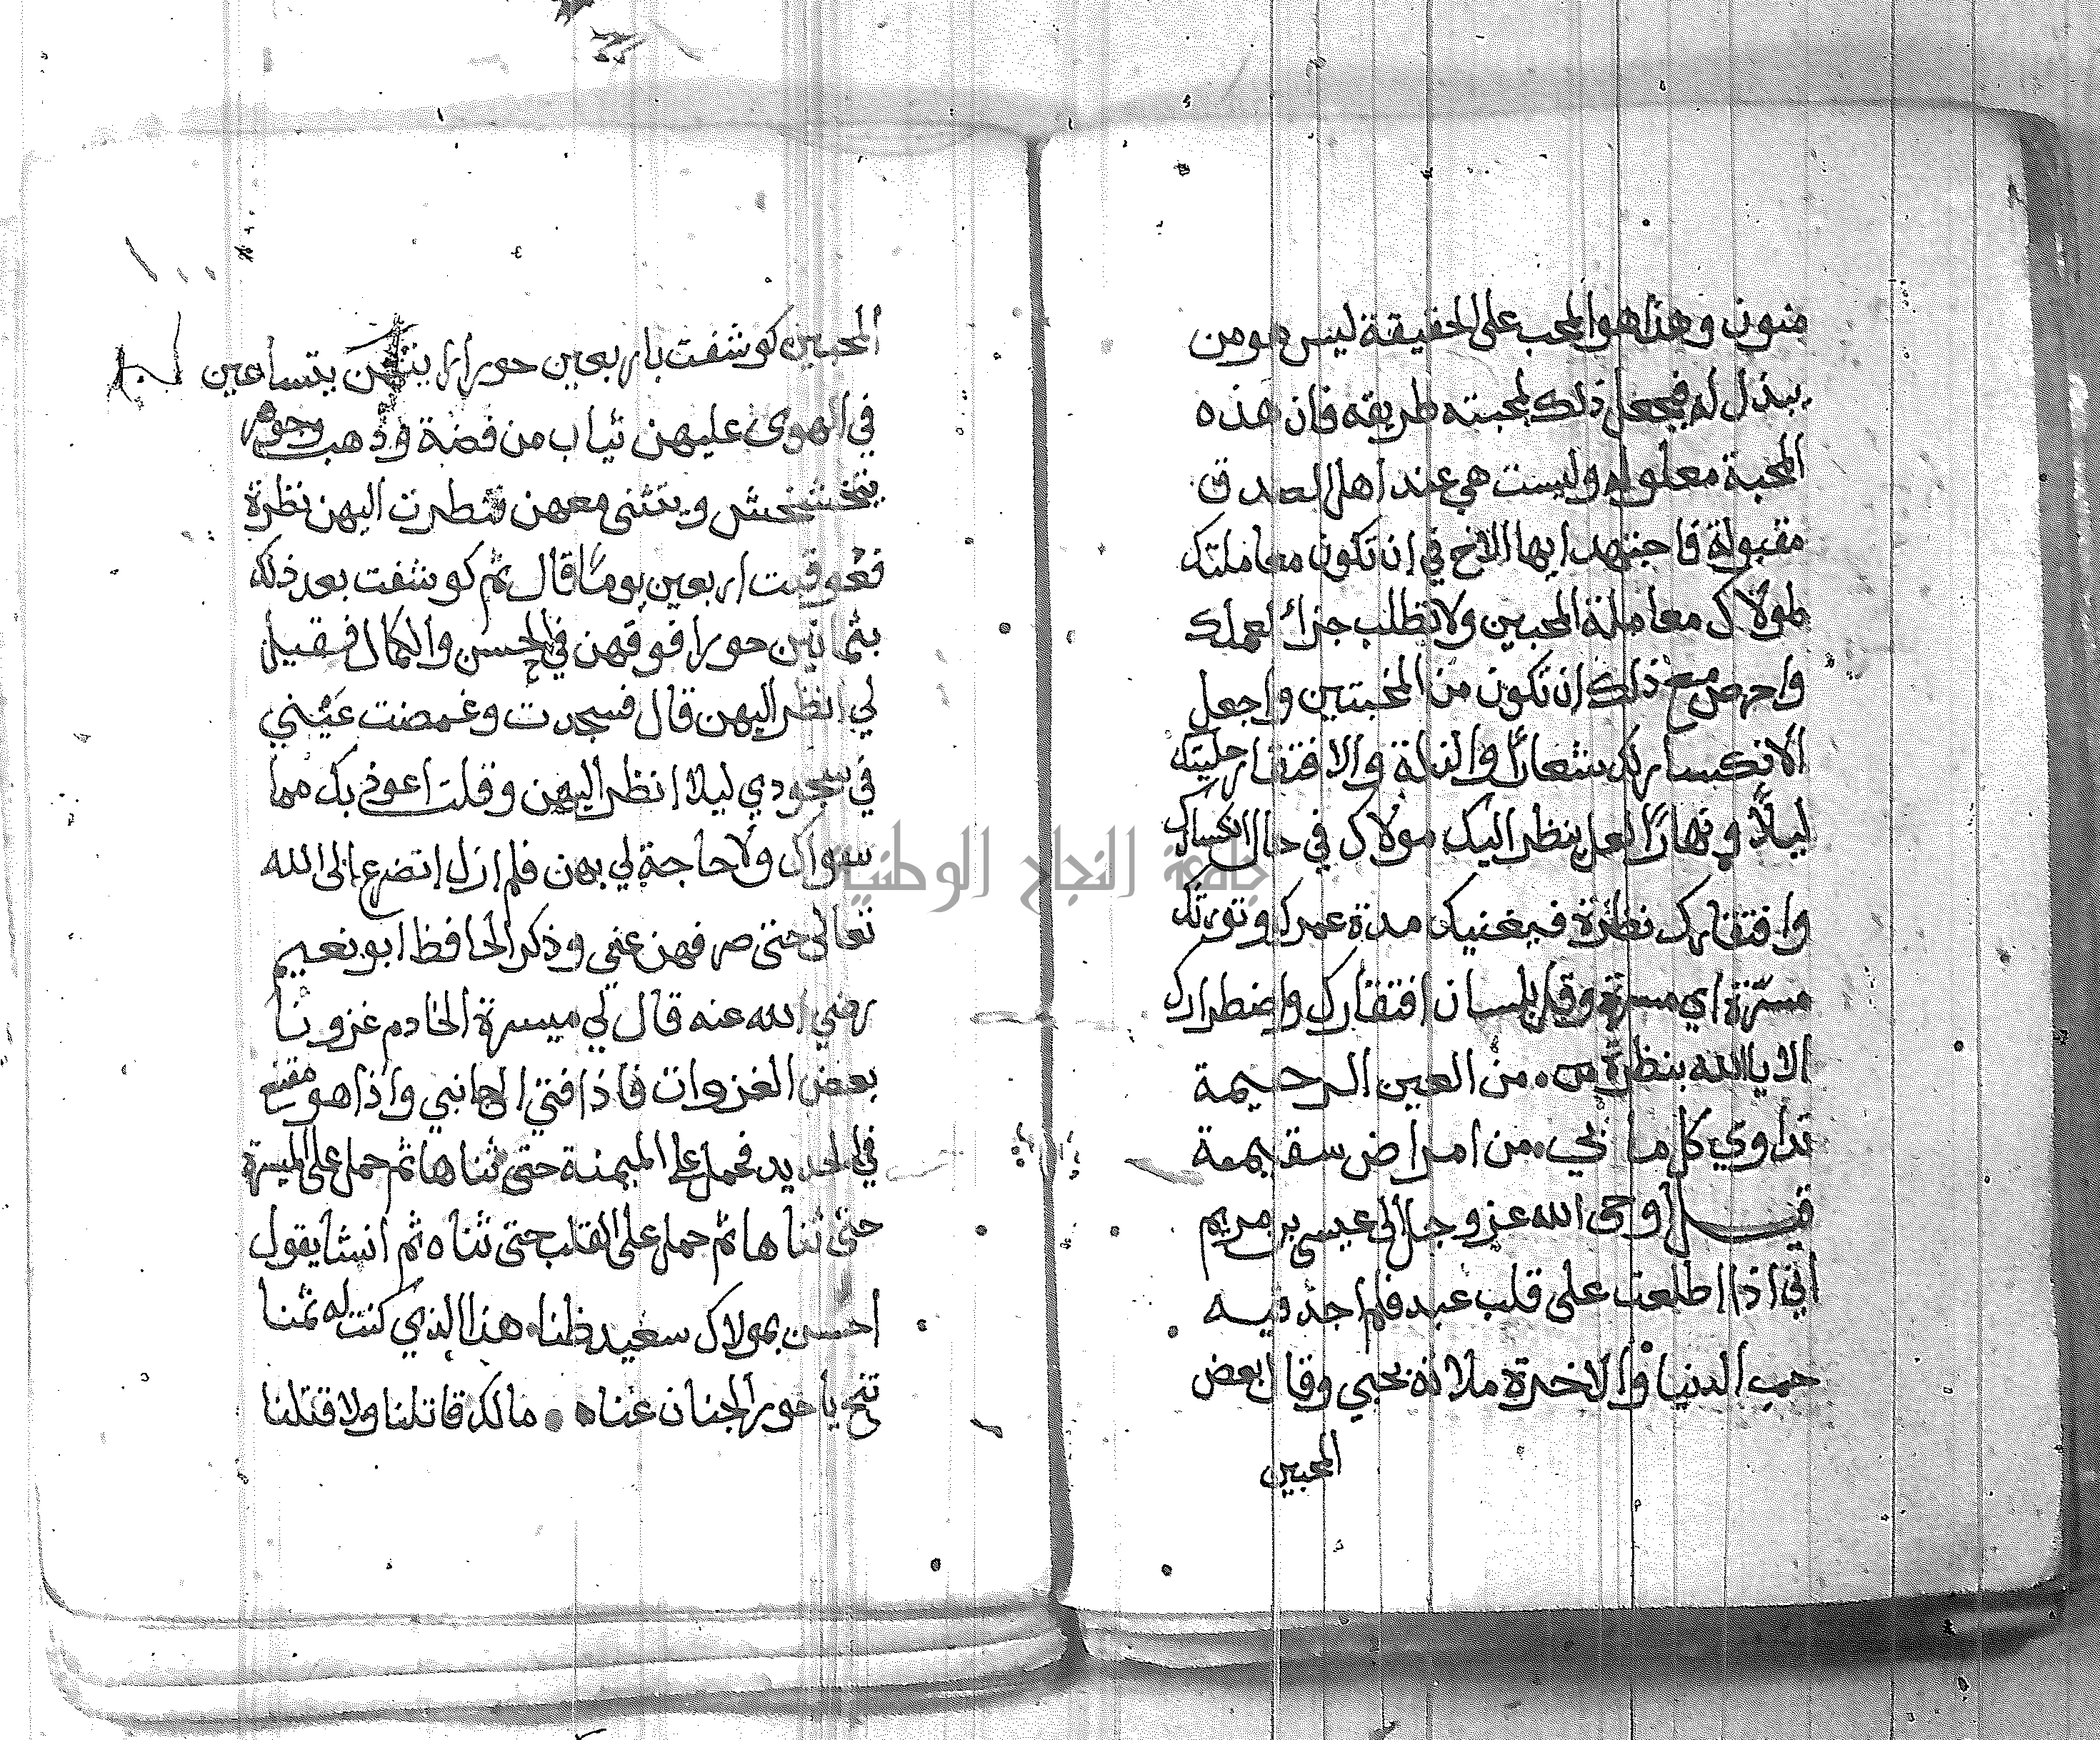 منون وهذا هو المحب على الحقيقة ليس هو من
يبذل له فيجعل ذلك لمحبته طريقه فان هذه
المحبة معلوله وليست هي عند اهل الصدق
مقبولة فاجتهد ايها الاخ في ان تكون معاملتك
لمولاك معاملة المحبين ولا تطلب جزاء لعملك
واحرص مع ذلك ان تكون من المخبتين واجعل
الانكسار لك شعارًا والذلة والافتقار حليتك
ليلًا ونهارًا لعل ينظر اليك مولاك في حال انكسارك
وافتقارك نظرة فيغنيك مدة عمرك وتورثك
مسرّة اي مسرة وقل بلسان افتقارك واضطرارك
الا يا الله بنظرة من العين الرحيمة
تداوي كل ما بي من امراض سقيمة
قيل اوحى الله عز وجل الى عيسى بن مريم
اني اذا اطلعت على قلب عبد فلم اجد فيه
حب الدنيا والاخرة ملاته بحبي وقال بعض
المحبين
المحبين كوشفت باربعين حورا يتساعين
في الهوى عليهن ثياب من فضة وذهب وجوهر
يتخشخش ويتثنى معهن فنظرت اليهن نظرة
فعوقبت اربعين يومًا قال ثم كوشفت بعد ذلك
بثمانين حورا فوقهن في الحسن والكمال فقيل
لي انظر اليهن قال فسجدت وغمضت عيني
في سجودي ليلا انظر اليهن وقلت اعوذ بك مما
سواك ولا حاجة لي بهن فلم ازل اتضرع الى الله
تعالى حتى صرفهن عني وذكر الحافظ ابو نعيم
رضي الله عنه قال لي ميسرة الخادم غزونا
بعض الغزوات فاذا فتى الى جانبي واذا هو مقنع
في الحديد فحمل على الميمنة حتى ثناها ثم حمل على الميسرة
حتى ثناها ثم حمل على القلب حتى ثناه ثم انشا يقول
احسن بمولاك سعيد ظنا هذا الذي كنت له تمنا
تنح يا حور الجنان عنا مالك قاتلنا ولا قتلنا
جامعة النجاح الوطنية